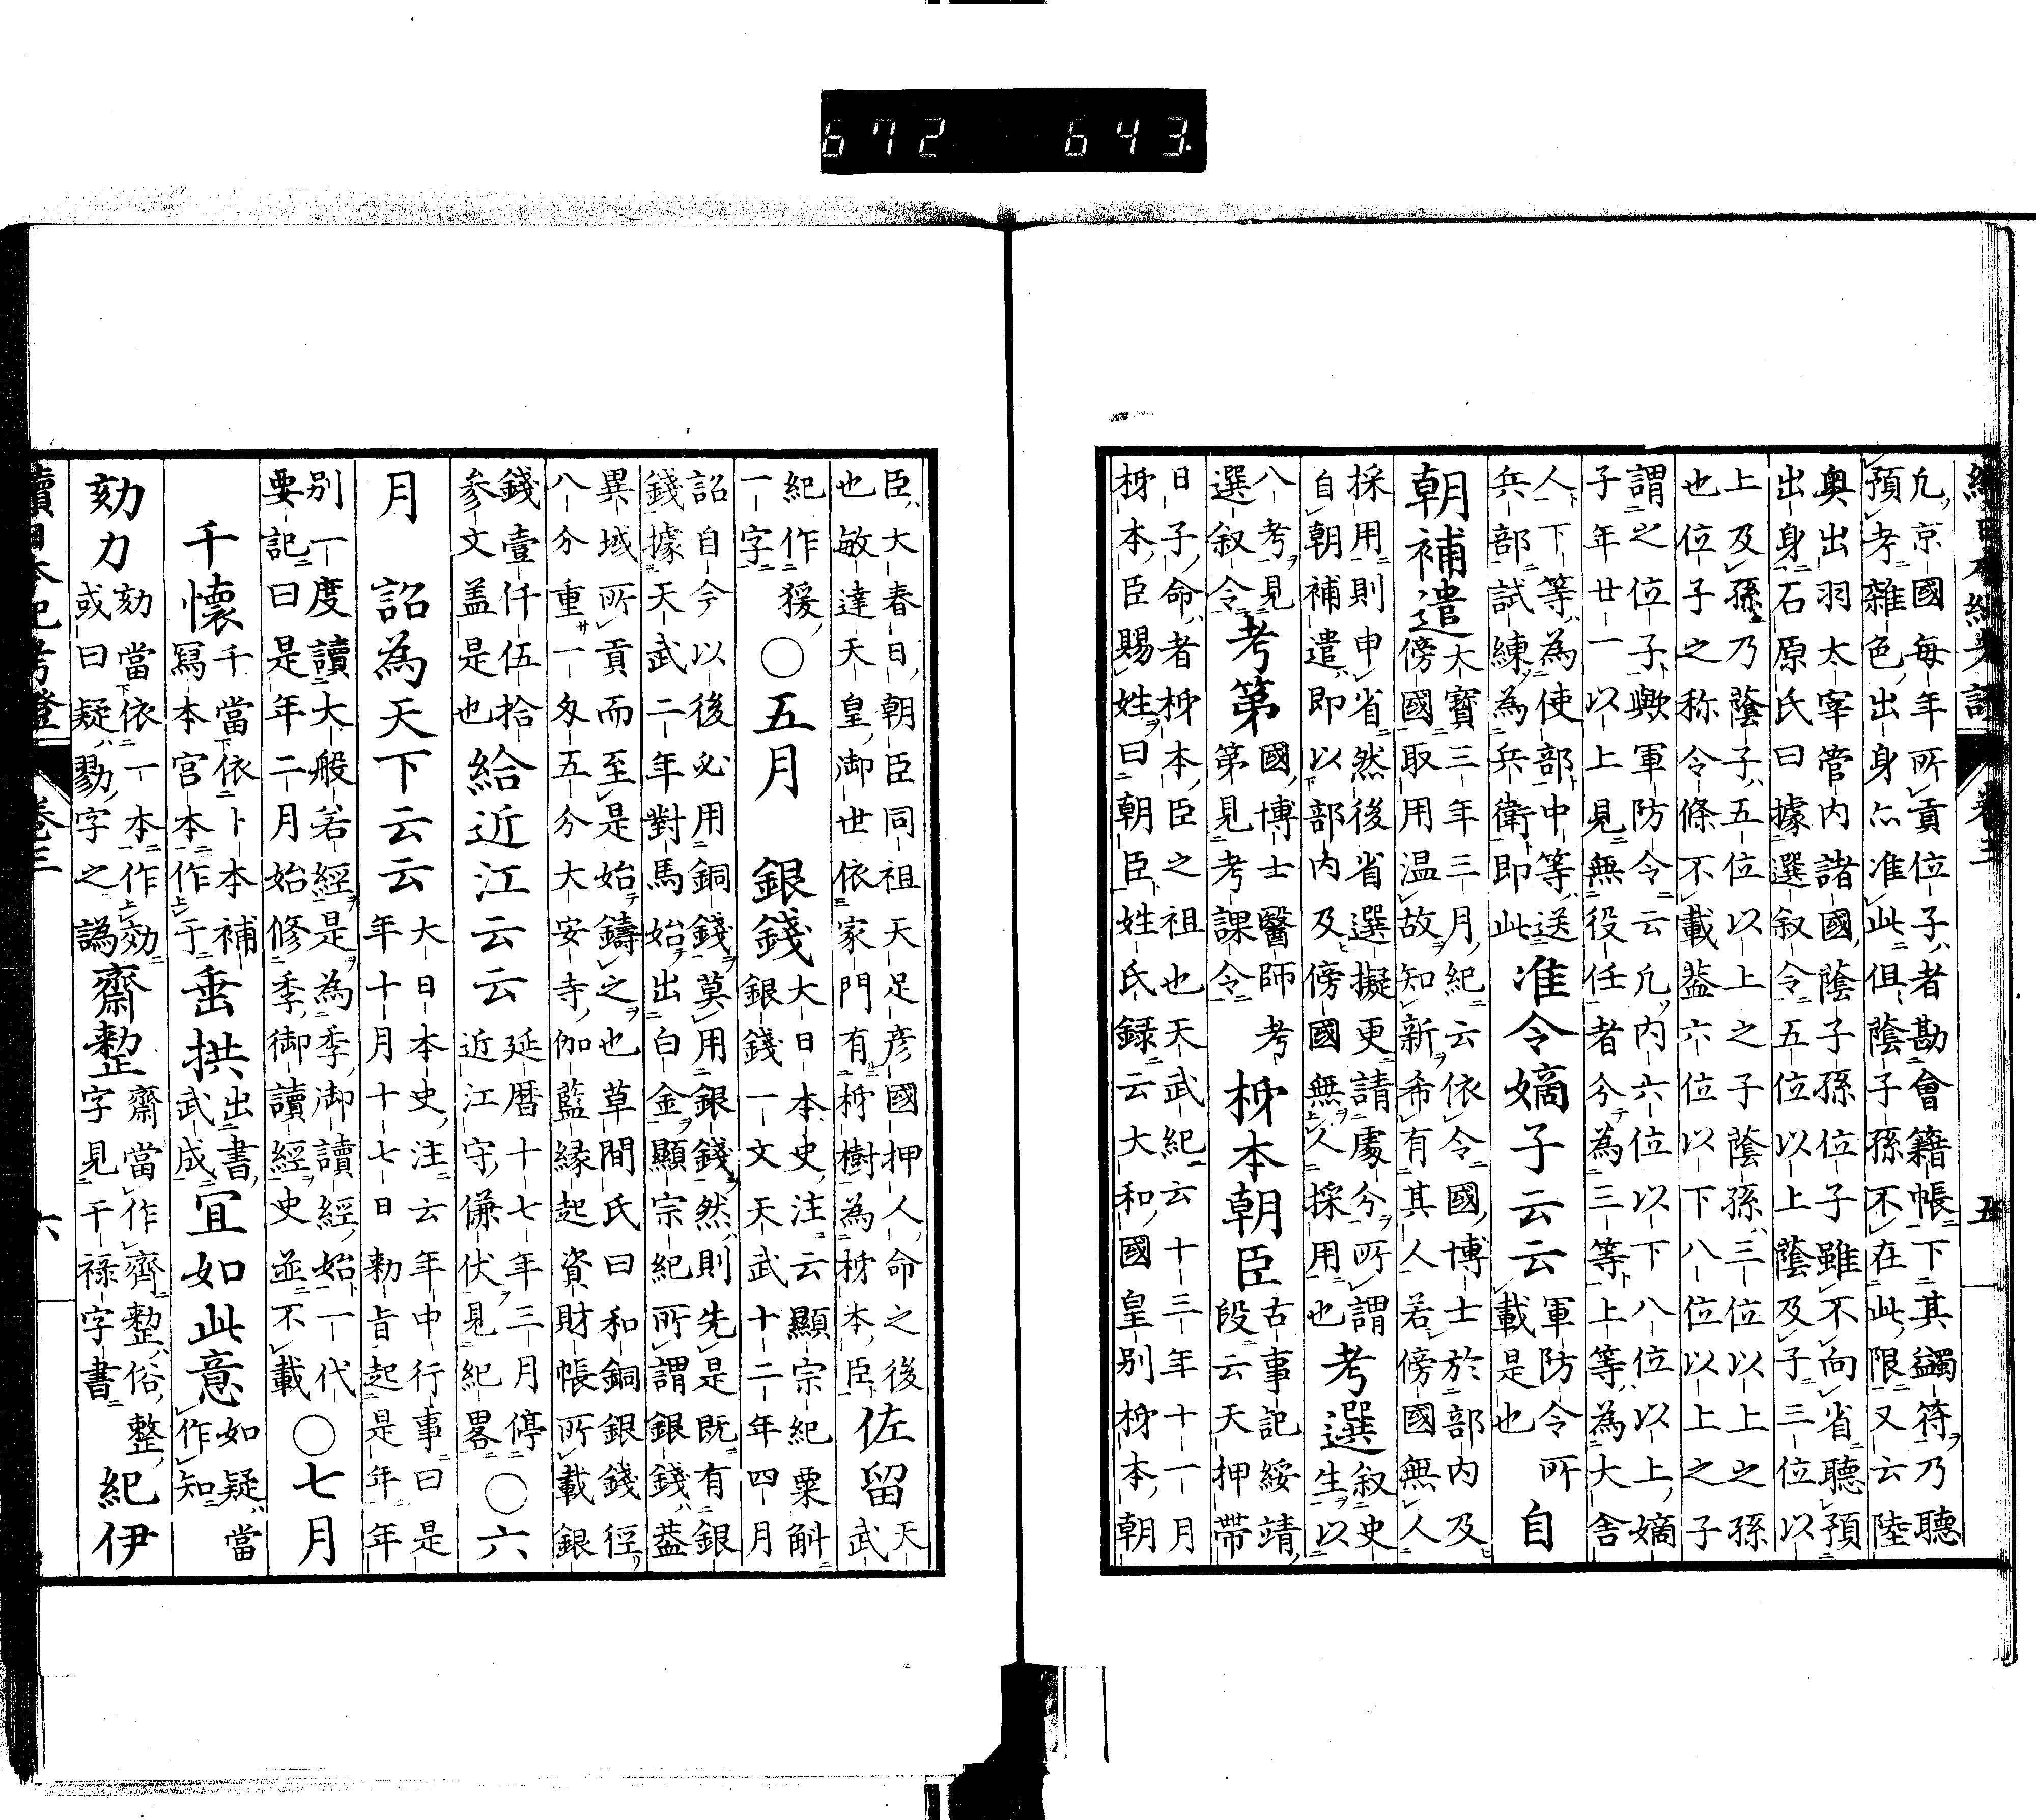 672 643
凢京國每年所貢位子者勘會籍帳下其蠲符乃聽
預考雜色出身亦准此但蔭子孫不在此限又云陸
奥出羽太宰管内諸國蔭子孫位子雖不向省聽預
出身石原氏曰據選叙令五位以上蔭及子三位以
上及孫乃蔭子五位以上之子蔭孫三位以上之孫
也位子之称令條不載葢六位以下八位以上之子
謂之位子歟軍防令云凢内六位以下八位以上嫡
子年廿一以上見無役任者分為三等上等為大舎
人下等為使部中等送
兵部試練為兵衛即此
准令嫡子云云
軍防令所
載是也
自
朝補遣
大寳三年三月紀云依令國博士於部内及
傍國取用温故知新希有其人若傍國無人
採用則申省然後省選擬更請處分所謂
自朝補遣即以部内及傍國無人採用也
考選
叙史
生以
八考見
選叙令
考第
國博士醫師考
第見考課令
柹本朝臣
古事記綏靖
段云天押帶
日子命者柹本臣之祖也天武紀云十三年十一月
柹本臣賜姓曰朝臣姓氏録云大和國皇别柹本朝
臣大春日朝臣同祖天足彦國押人命之後
也敏達天皇御世依家門有柹樹為柹本臣
佐留
天
武
紀作猨
一字
〇五月
銀錢
大日本史注云顯宗紀粟斛
銀錢一文天武十二年四月
詔自今以後必用銅錢莫用銀錢然則先是既有銀
錢據天武二年對馬始出白金顯宗紀所謂銀錢葢
異域所貢而至是始鑄之也草間氏曰和銅銀錢徑
八分重一匁五分大安寺伽藍縁起資財帳所載銀
錢壹仟伍拾
参文盖是也
給近江云云
延暦十七年三月停
近江守傔伏見紀畧
〇六
月
詔為天下云云
大日本史注云年中行事曰是
年十月十七日勅旨起是年年
别一度讀大般若經是為季御讀經始一代
要記曰是年二月始修季御讀經史並不載
〇七月
千懷
千當依卜本補
寫本宮本作于
垂拱
出書
武成
宜如此意
如疑當
作知
劾力
劾當依一本作効
或曰疑勠字之譌
齋整
齋當作齊整俗整
字見干禄字書
紀伊
續日本紀考證
卷三
六